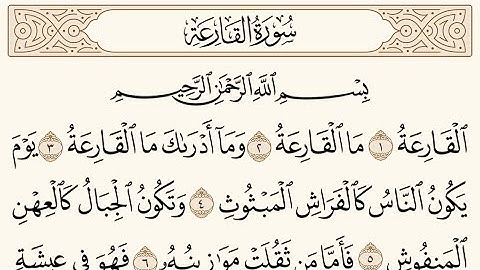 سُورَةُ القَارِعَةِ
بِسْمِ ٱللَّهِ ٱلرَّحْمَٰنِ ٱلرَّحِيمِ
ٱلْقَارِعَةُ ١ مَا ٱلْقَارِعَةُ ٢ وَمَآ أَدْرَىٰكَ مَا ٱلْقَارِعَةُ ٣ يَوْمَ
يَكُونُ ٱلنَّاسُ كَٱلْفَرَاشِ ٱلْمَبْثُوثِ ٤ وَتَكُونُ ٱلْجِبَالُ كَٱلْعِهْنِ
ٱلْمَنفُوشِ ٥ فَأَمَّا مَن ثَقُلَتْ مَوَٰزِينُهُۥ ٦ فَهُوَ فِي عِيشَةٍ